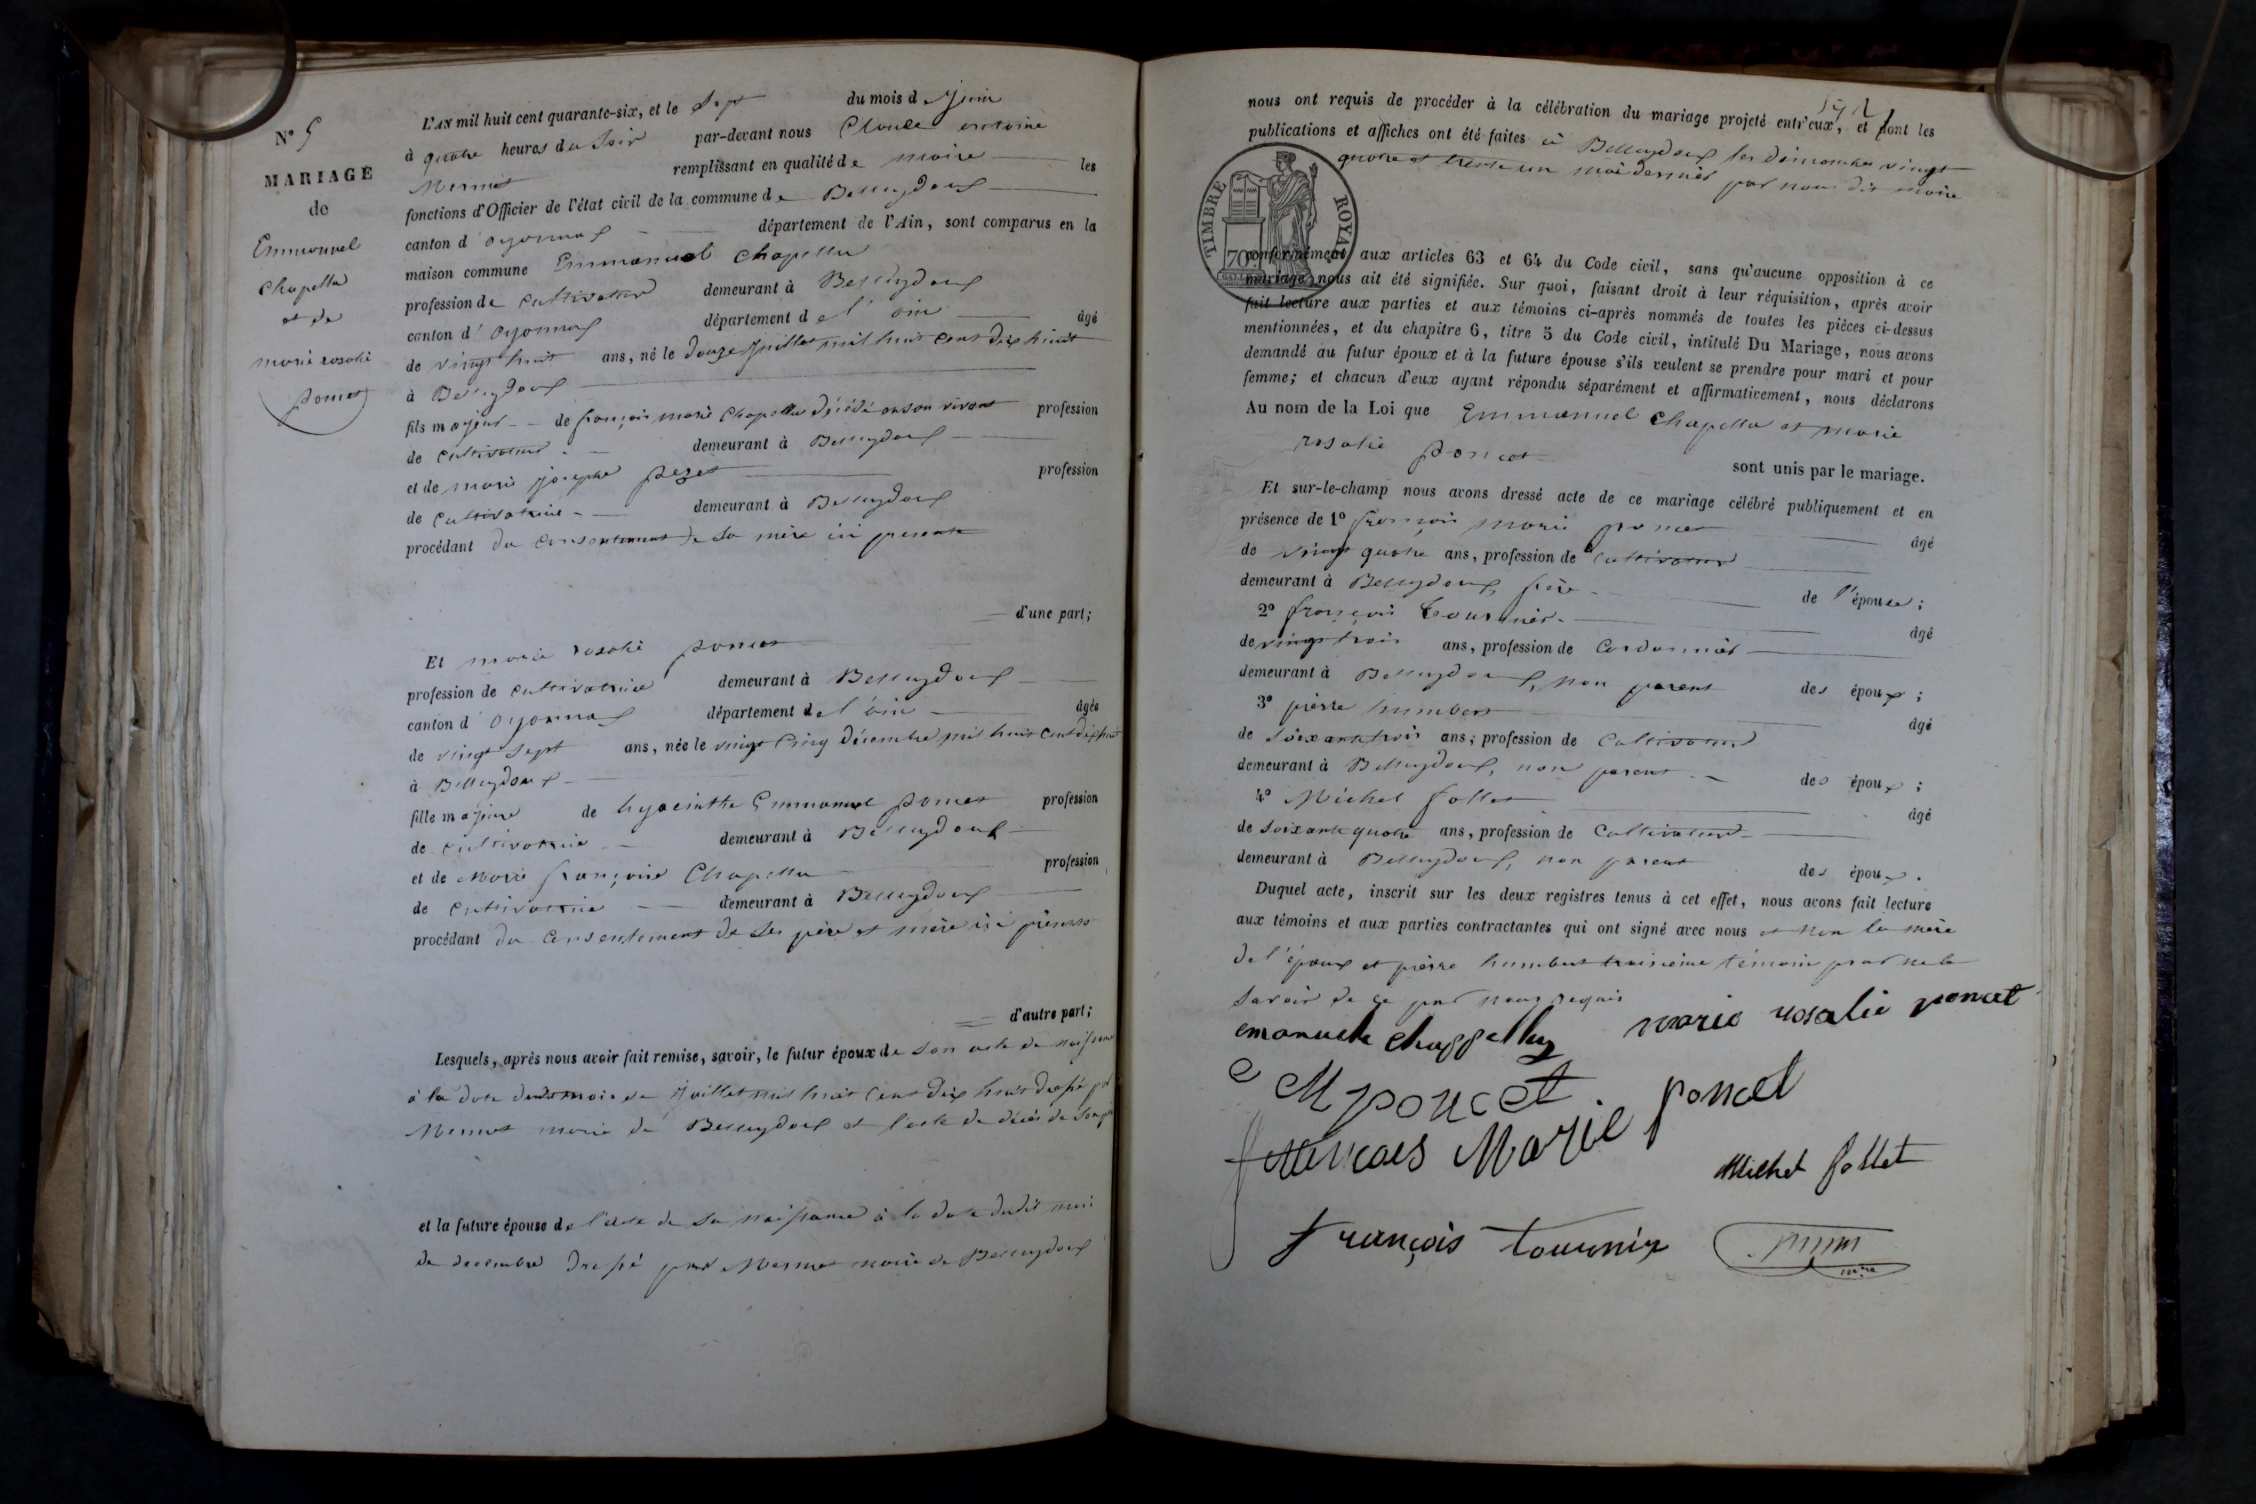 N° 5
MARIAGE
de
Emmanuel
Chapellu
et de
marie rosalie
poncet
L'AN mil huit cent quarante-six, et le Sept du mois de Juin
à quatre heures du Soir par-devant nous Claude antoine
Mermet remplissant en qualité de maire les
fonctions d'Officier de l'état civil de la commune de Belleydoux
canton d'oyonnax département de l'Ain, sont comparus en la
maison commune Emmanuel Chapellu
profession de Cultivateur demeurant à Belleydoux
canton d'oyonnax département de l'ain âgé
de vingt huit ans, né le douze Juillet mil huit cent dix huit
à Belleydoux
fils majeur de françois marie Chapellu décédé en son vivant profession
de Cultivateur demeurant à Belleydoux
et de marie josephe profession
de Cultivatrice demeurant à Belleydoux
procédant du Consentement de sa mère ici presente
d'une part;
Et marie rosalie poncet
profession de Cultivatrice demeurant à Belleydoux
canton d'oyonnax département de l'ain âgée
de vingt sept ans, née le vingt Cinq décembre mil huit Cent dix huit
à Belleydoux
fille majeure de hyacinthe Emmanuel poncet profession
de cultivatrice demeurant à Belleydoux
et de Marie françoise Chapellu profession
de Cultivatrice demeurant à Belleydoux
procédant du Consentement de ses père et mère ici présents
d'autre part;
Lesquels, après nous avoir fait remise, savoir, le futur époux de son acte de naissance
à la date dudit mois de Juillet mil huit Cent dix huit dressé par
Mermet maire de Belleydoux et l'acte de décès de son père
et la future épouse de l'acte de sa naissance à la date dudit mois
de decembre dressé par Mermet maire de Belleydoux
nous ont requis de procéder à la célébration du mariage projeté entr'eux, et dont les
publications et affiches ont été faites à Belleydoux les dimanches vingt
quatre et trente un mai dernier par nous dit maire
TIMBRE ROYAL
70
conformément aux articles 63 et 64 du Code civil, sans qu'aucune opposition à ce
mariage nous ait été signifiée. Sur quoi, faisant droit à leur réquisition, après avoir
fait lecture aux parties et aux témoins ci-après nommés de toutes les pièces ci-dessus
mentionnées, et du chapitre 6, titre 5 du Code civil, intitulé Du Mariage, nous avons
demandé au futur époux et à la future épouse s'ils veulent se prendre pour mari et pour
femme; et chacun d'eux ayant répondu séparément et affirmativement, nous déclarons
Au nom de la Loi que Emmanuel Chapellu et marie
rosalie poncet sont unis par le mariage.
Et sur-le-champ nous avons dressé acte de ce mariage célébré publiquement et en
présence de 1° françois marie poncet âgé
de vingt quatre ans, profession de Cultivateur
demeurant à Belleydoux, frère de l'épouse;
2° françois tournier âgé
de vingt trois ans, profession de Cordonnier
demeurant à Belleydoux, non parent des époux;
3° pierre humbert âgé
de soixante trois ans; profession de Cultivateur
demeurant à Belleydoux, non parent des époux;
4° Michel follet âgé
de soixante quatre ans, profession de Cultivateur
demeurant à Belleydoux, non parent des époux.
Duquel acte, inscrit sur les deux registres tenus à cet effet, nous avons fait lecture
aux témoins et aux parties contractantes qui ont signé avec nous et non la mère
de l'époux et pierre humbert troisième témoin pour ne le
savoir de ce par nous requis
emanuele chappelluz marie rosalie poncet
e M poncet.
francois Marie poncet
Michel follet
françois tournier
maire